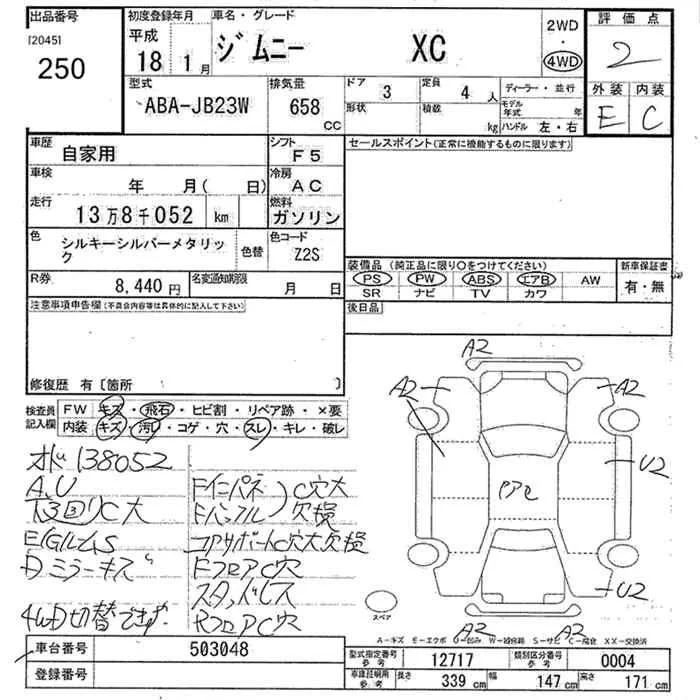 出品番号
[2045]
250
初度登録年月
平成
18 1 月
車名・グレード
ジムニー XC
2WD
・
4WD
評価点
2
外装 内装
E C
型式
ABA-JB23W
排気量
658
CC
ドア
3
定員
4 人
形状
積載
kg
ディーラー・並行
モデル年式 年
ハンドル 左・右
車歴
自家用
シフト
F5
セールスポイント(正常に機能するものに限ります)
車検
年 月( 日)
冷房
AC
走行
13万8千052 km
燃料
ガソリン
色
シルキーシルバーメタリック
色替
色コード
Z2S
R券
8,440 円
名変通知期限
月 日
装備品 (純正品に限り○をつけてください)
PS PW ABS エアB AW
SR ナビ TV カワ
新車保証書
有・無
後日品
注意事項申告欄(不具合内容等は具体的に記入して下さい)
修復歴 有〔箇所 〕
検査員記入欄
FW キズ・飛石・ヒビ割・リペア跡・×要
内装 キズ・汚れ・コゲ・穴・スレ・キレ・破レ
138052
A,U
C大
Dミラーキズ
4WD切替できず
C穴大
欠損
コアサポートC穴大欠損
FフロアC穴
RフロアC穴
A2
A2
A2
U2
U2
A2
A2
スペア
A-キズ E-エクボ U-凹み W-補修跡 S-サビ C-腐食 XX-交換済
車台番号
503048
登録番号
型式指定番号
参考
12717
類別区分番号
参考
0004
車庫証明用
参考
長さ 339 cm 幅 147 cm 高さ 171 cm